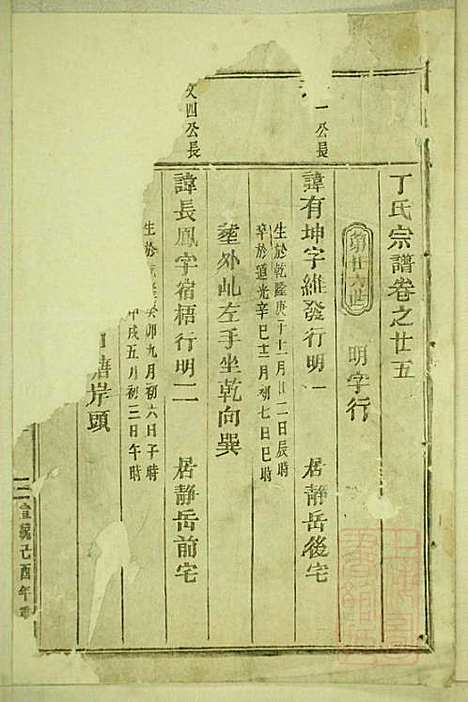 丁氏宗譜卷之廿五
第廿六世 明字行
一公長
諱有坤字維發行明一 居靜岳後宅
生於乾隆庚子十一月廿二日辰時
卒於道光辛巳十二月初七日巳時
塟外屾左手坐乾向巽
文四公長
諱長鳳字宿梧行明二 居靜岳前宅
生於 癸卯九月初六日子時
甲戌五月初三日午時
塘岸頭
宣統己酉年重